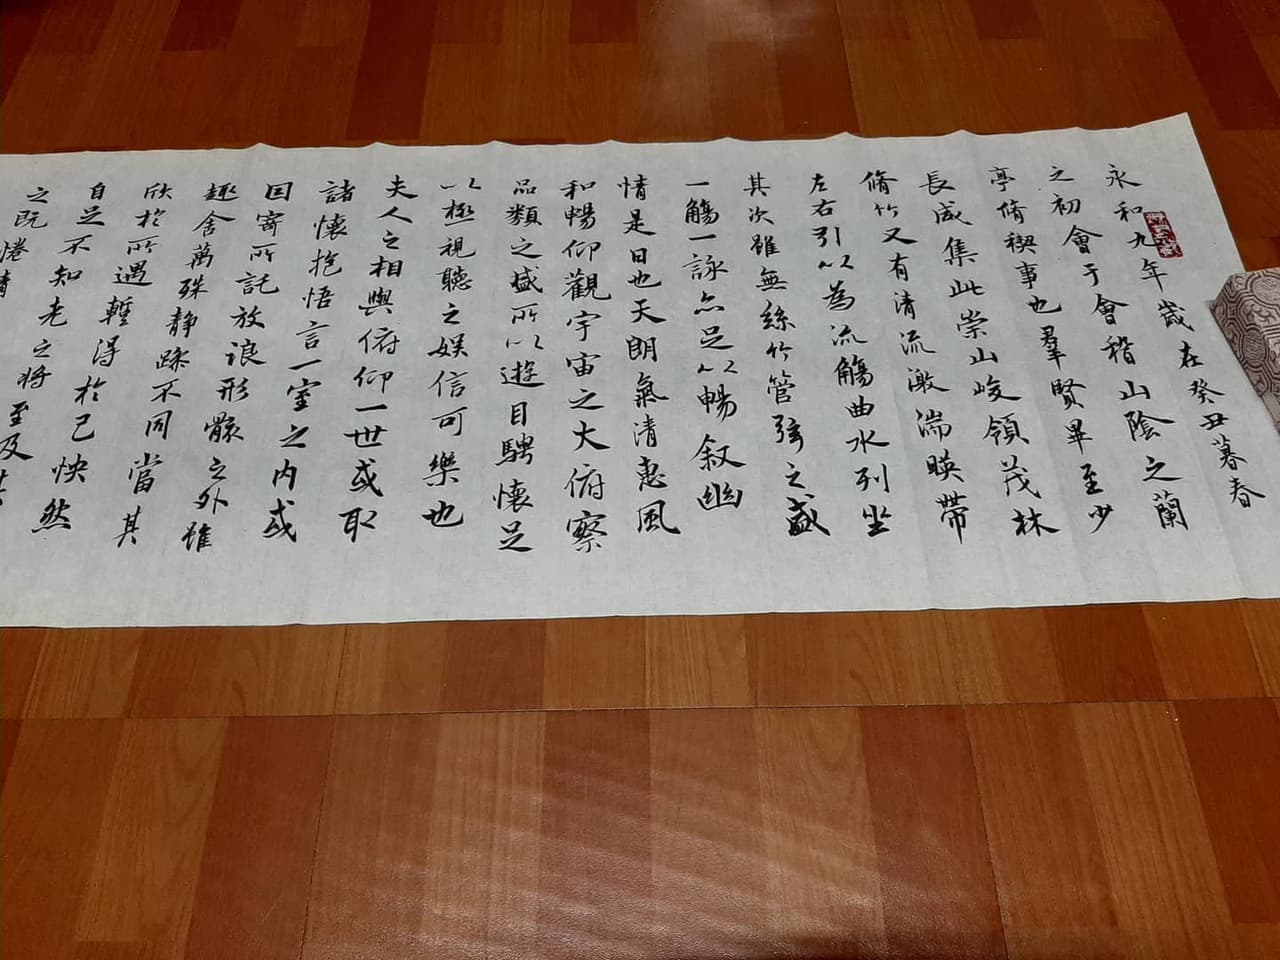 永和九年歲在癸丑暮春
之初會于會稽山陰之蘭
亭脩稧事也羣賢畢至少
長咸集此崇山峻領茂林
脩竹又有清流激湍暎帶
左右引以為流觴曲水列坐
其次雖無絲竹管弦之盛
一觴一詠亦足以暢叙幽
情是日也天朗氣清惠風
和暢仰觀宇宙之大俯察
品類之盛所以遊目騁懷足
以極視聽之娛信可樂也
夫人之相與俯仰一世或取
諸懷抱悟言一室之內或
因寄所託放浪形骸之外雖
趣舍萬殊静踈不同當其
欣於所遇暫得於己快然
自足不知老之將至及
之既惓情